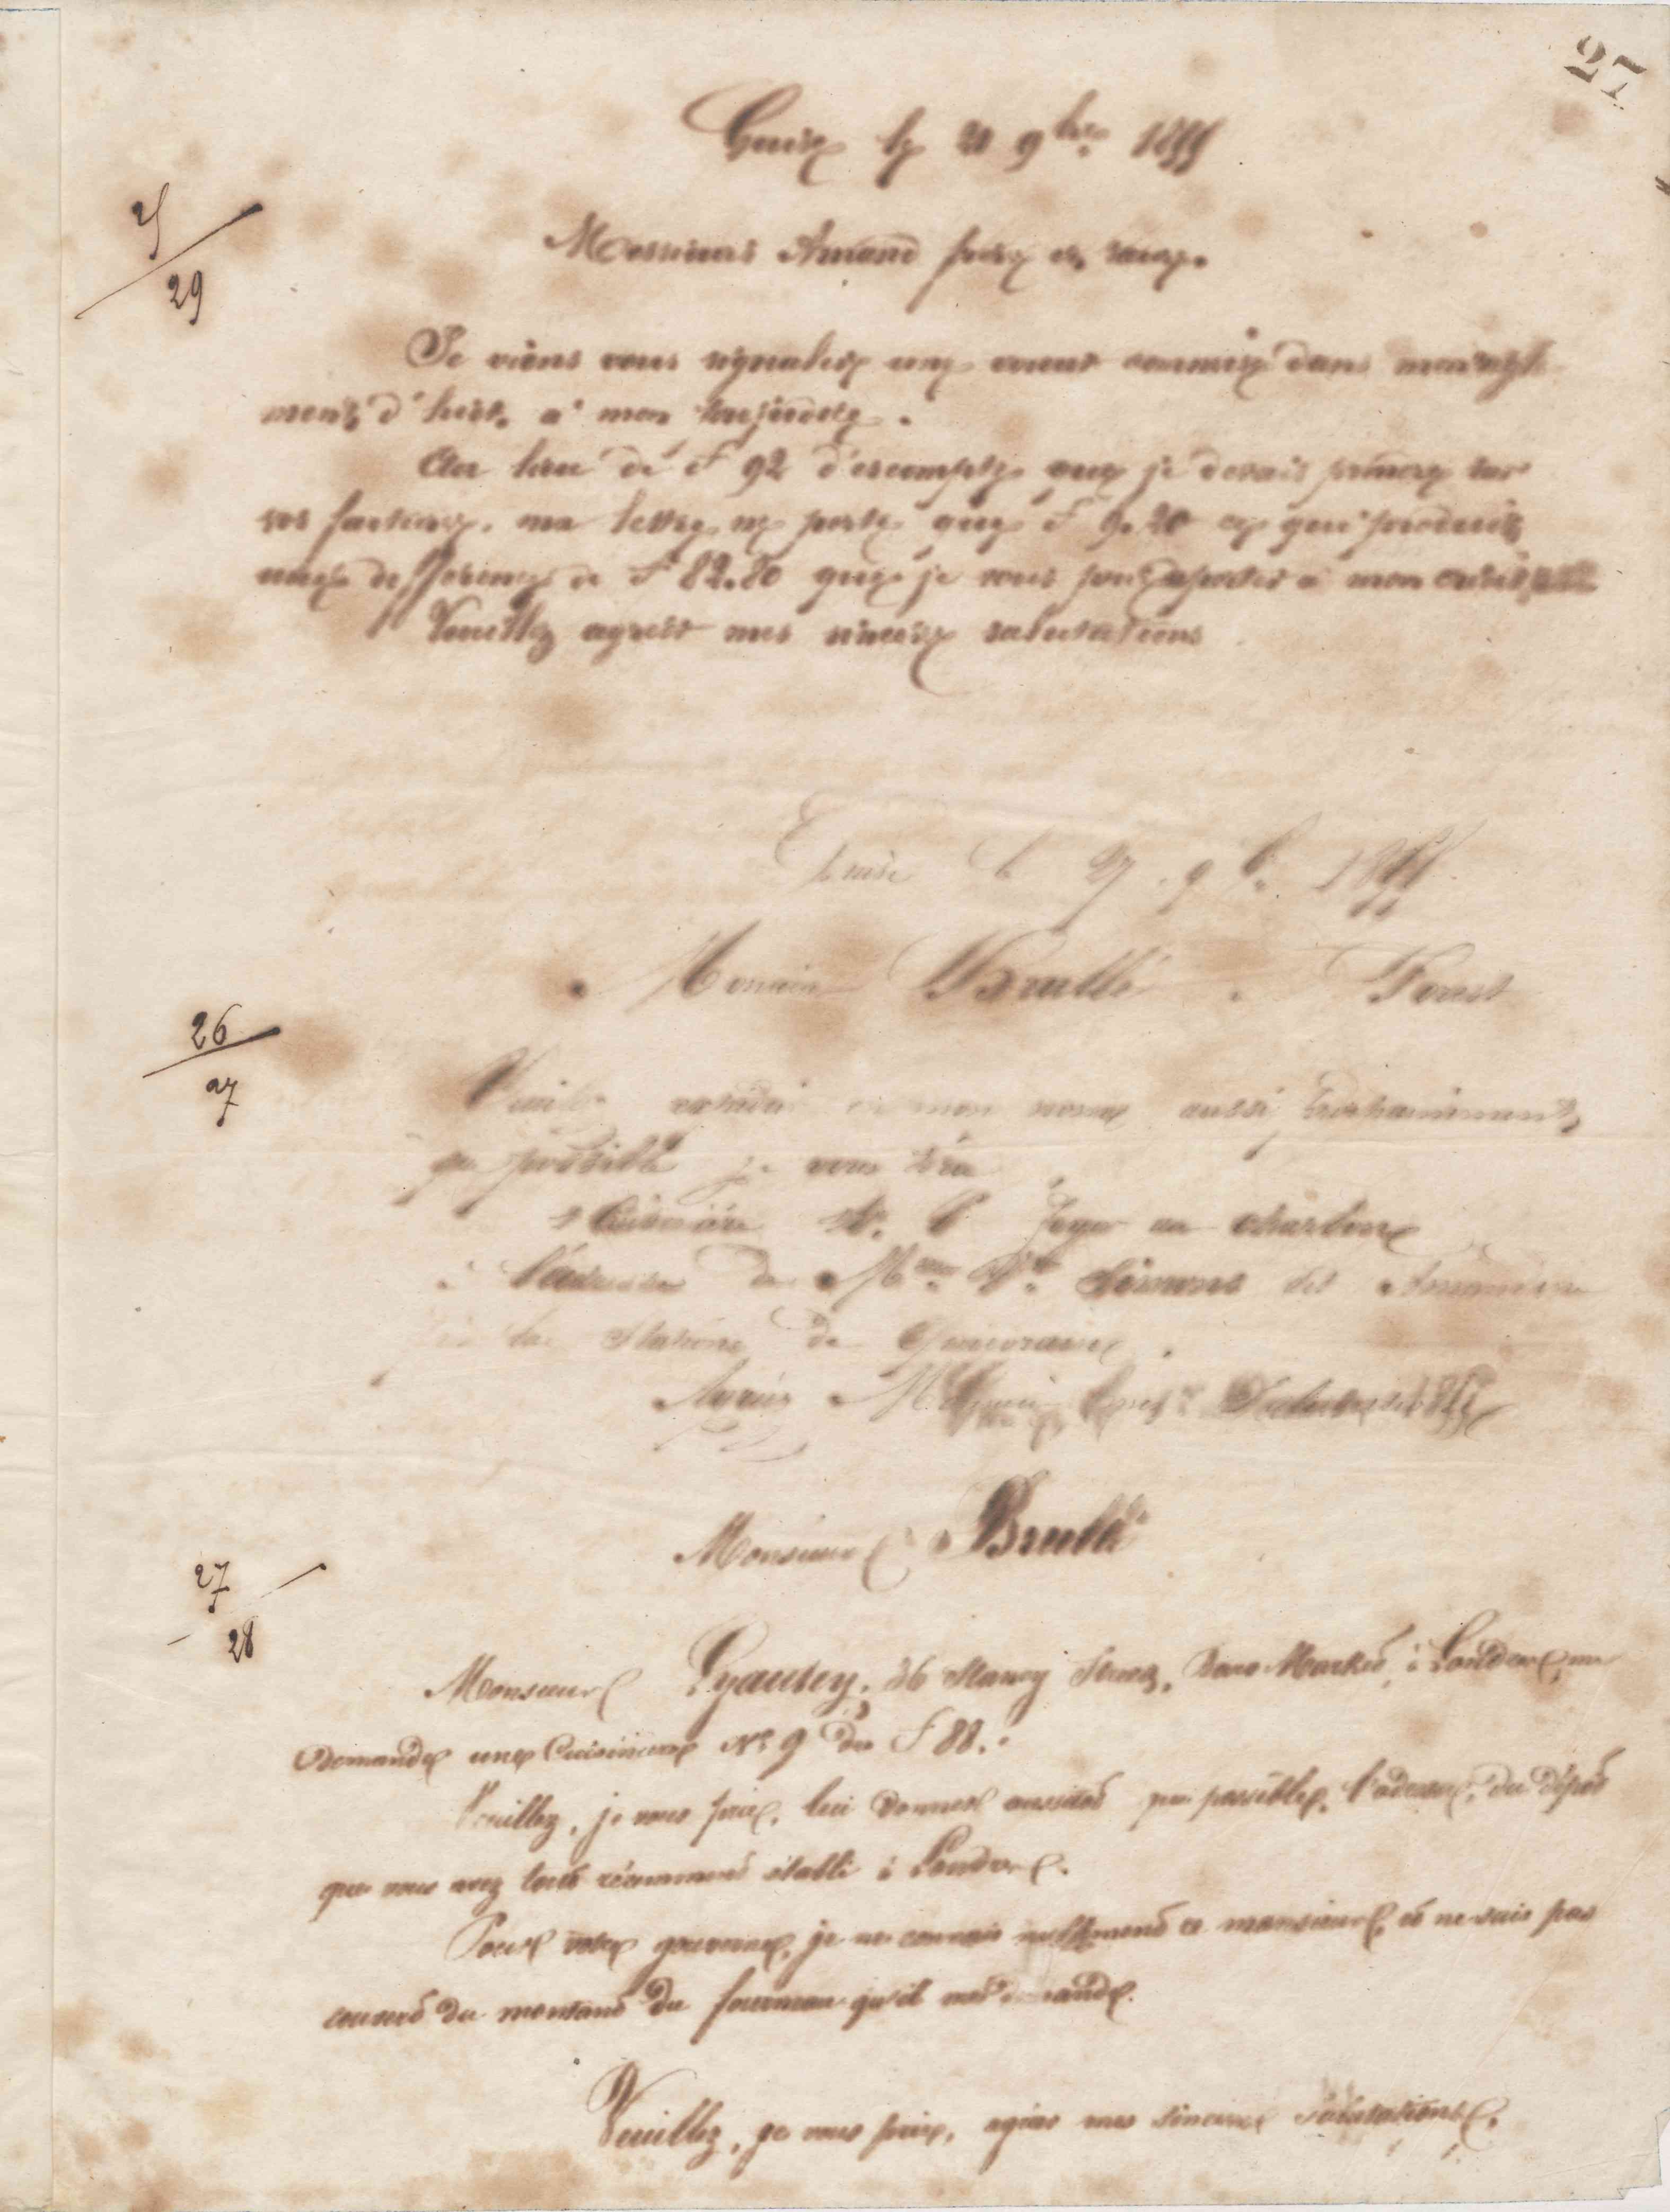 27
Guise le 21 9bre 1855
25
29
Messieurs Amand frère et sœur.
Je viens vous signaler une erreur commise dans mon règle
ment d'hier, à mon préjudice.
Au lieu de f 92 d'escompte que je devais prendre sur
vos factures, ma lettre ne porte que f 9.20 ce qui produit
une différence de f 82.80 que je vous prie porter à mon crédit
Veuillez agréer mes sincères salutations
Guise le 27 9b. 1855
Monsieur Brullé Forest
26
27
Veuillez expédier en mon nom aussi prochainement
que possible je vous prie
1 Cuisinière No. 6 foyer au charbon
à l'adresse de Mme Ve Simons
la station de Quiévrain.
Agréez M.
Monsieur Brullé
27
28
Monsieur Gyautey, 36 Street, Market, à Londres, me
demande une Cuisinière No 9 de f 88.
Veuillez, je vous prie, lui donner aussitôt que possible, l'adresse, du dépôt
que vous avez tout récemment établi à Londres.
Pour votre gouverne, je ne connais nullement ce monsieur et ne suis pas
couvert du montant du fourneau qu'il me demande.
Veuillez, je vous prie, agréer mes sincères salutations.